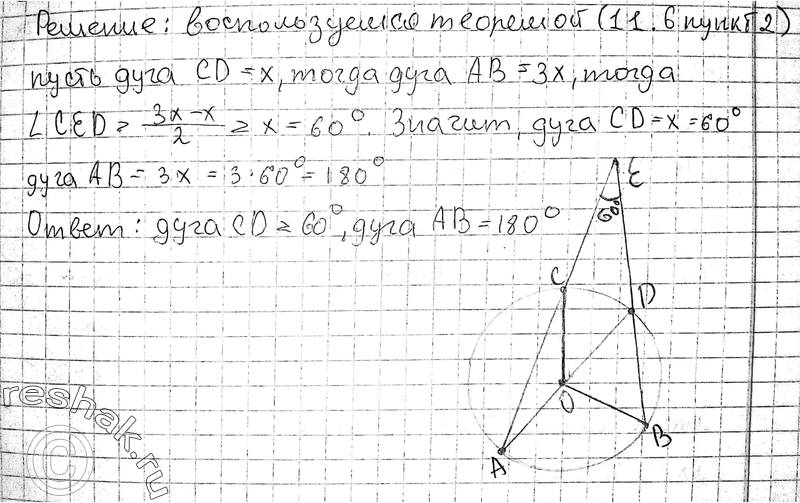 Решение: воспользуемся теоремой (11.6 пункт 2)
пусть дуга CD = x, тогда дуга AB = 3x, тогда
∠CED = (3x-x)/2 = x = 60°. Значит, дуга CD = x = 60°
дуга AB = 3x = 3·60° = 180°
Ответ: дуга CD = 60°, дуга AB = 180°
E
60°
C
D
O
B
A
reshak.ru
©